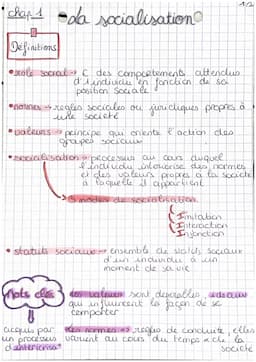 chap. 1
1/2
La socialisation
Définitions
• rôle social → des comportements attendus
d'1 individu en fonction de sa
position sociale
• normes → règles sociales ou juridiques propres à
une société
• valeurs → principe qui oriente l'action des
groupes sociaux
• socialisation → processus au cours duquel
l'individu intériorise des normes
et des valeurs propres à la société
à laquelle il appartient
→ 3 modes de socialisation
Imitation
Interaction
Injonction
• statuts sociaux → ensemble de
sociaux
d'un individu à un
moment de sa vie
Mots clés
les valeurs sont
idéaux
qui influencent la façon de se
comporter
acquis par
un processus
d'
les normes → règles de conduite, elles
varient au cours du temps
de la
société